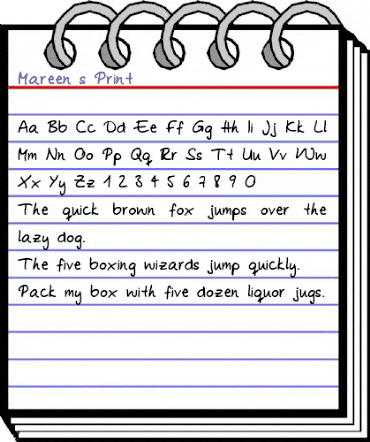 Mareen s Print
Aa Bb Cc Dd Ee Ff Gg Hh Ii Jj Kk Ll
Mm Nn Oo Pp Qq Rr Ss Tt Uu Vv Ww
Xx Yy Zz 1 2 3 4 5 6 7 8 9 0
The quick brown fox jumps over the
lazy dog.
The five boxing wizards jump quickly.
Pack my box with five dozen liquor jugs.